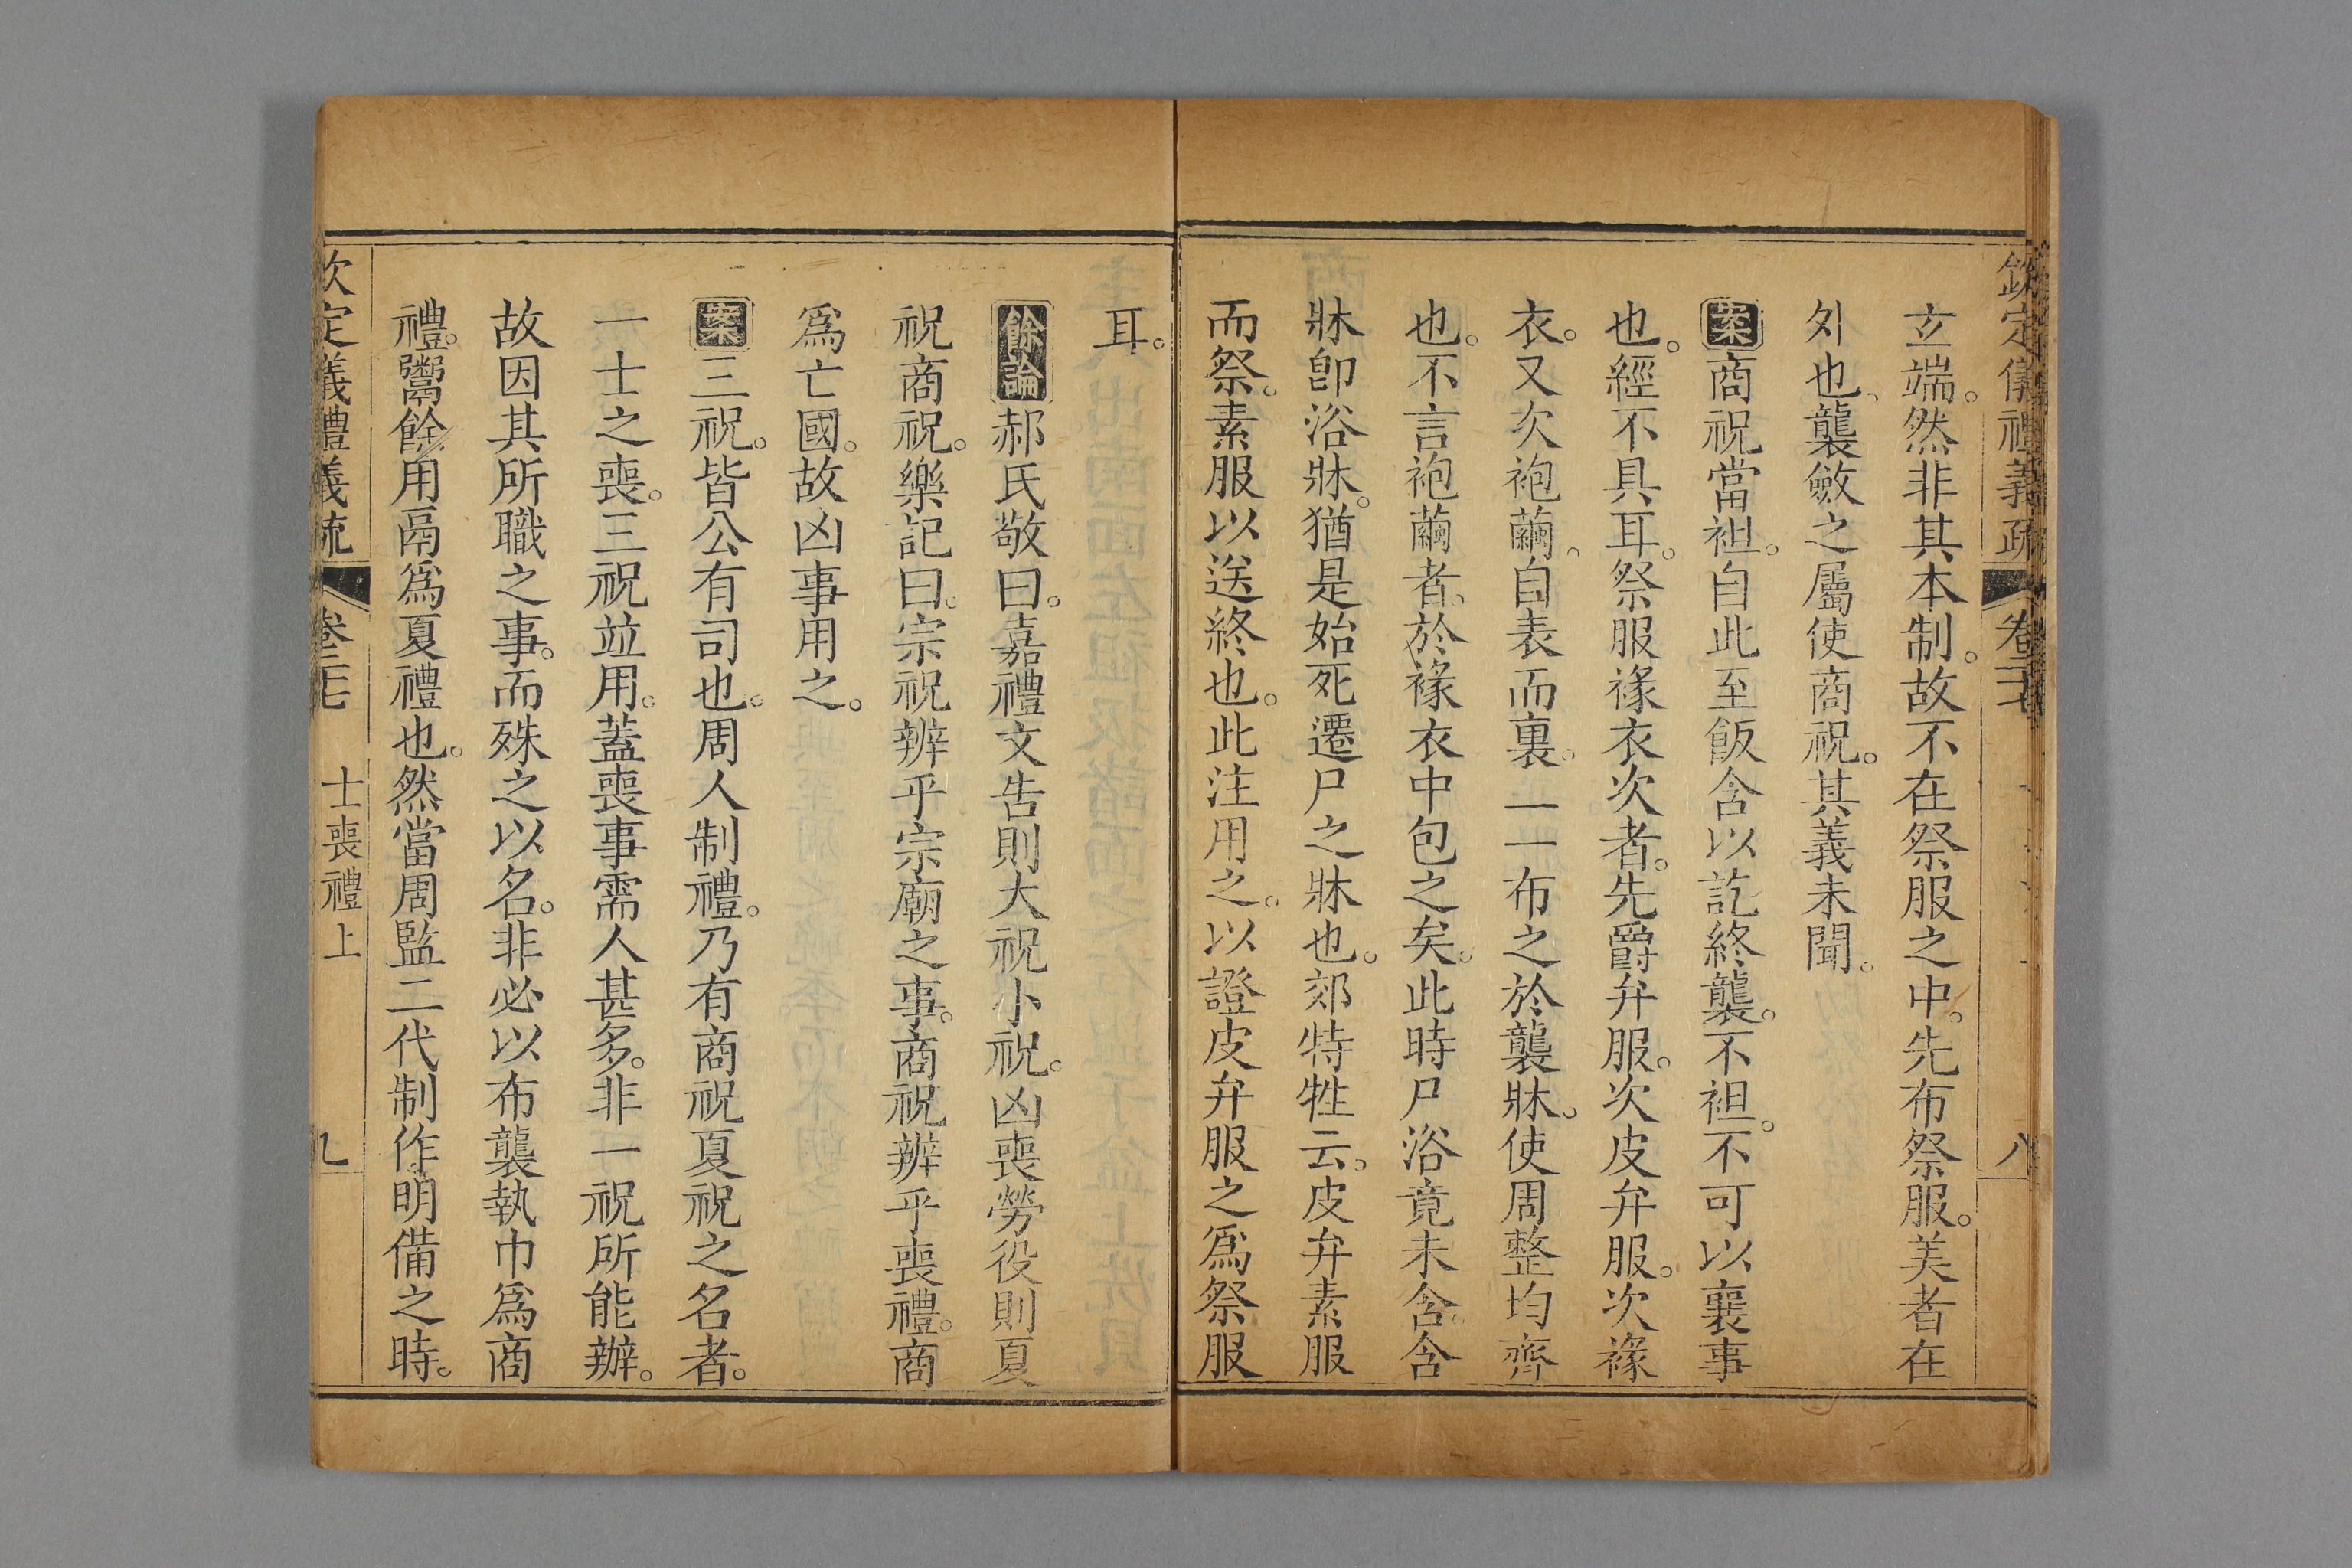 欽定儀禮義疏 卷二十七 八
玄端。然非其本制。故不在祭服之中。先布祭服。美者在
外也、襲斂之屬使商祝。其義未聞。
案商祝當袒。自此至飯含以訖終襲。不袒。不可以襄事
也。經不具耳。祭服褖衣次者。先爵弁服。次皮弁服。次褖
衣。又次袍繭、自表而裏。一一布之於襲牀。使周整均齊
也。不言袍繭者。於褖衣中包之矣。此時尸浴竟未含。含
牀卽浴牀。猶是始死遷尸之牀也。郊特牲云。皮弁素服
而祭。素服以送終也。此注用之。以證皮弁服之爲祭服
耳。
餘論郝氏敬曰。嘉禮文告則大祝小祝。凶喪勞役則夏
祝商祝。樂記曰。宗祝辨乎宗廟之事。商祝辨乎喪禮。商
爲亡國。故凶事用之。
案三祝。皆公有司也。周人制禮。乃有商祝夏祝之名者。
一士之喪。三祝竝用。蓋喪事需人甚多。非一祝所能辦。
故因其所職之事。而殊之以名。非必以布襲執巾爲商
禮。鬻餘用鬲爲夏禮也。然當周監二代制作明備之時。
欽定儀禮義疏 卷二十七 士喪禮上 九